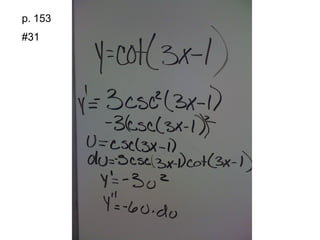 p. 153
#31
y=cot(3x-1)
y'=3csc²(3x-1)
-3(csc(3x-1))²
u=csc(3x-1)
du=-3csc(3x-1)cot(3x-1)
y'=-3u²
y''=-6u·du